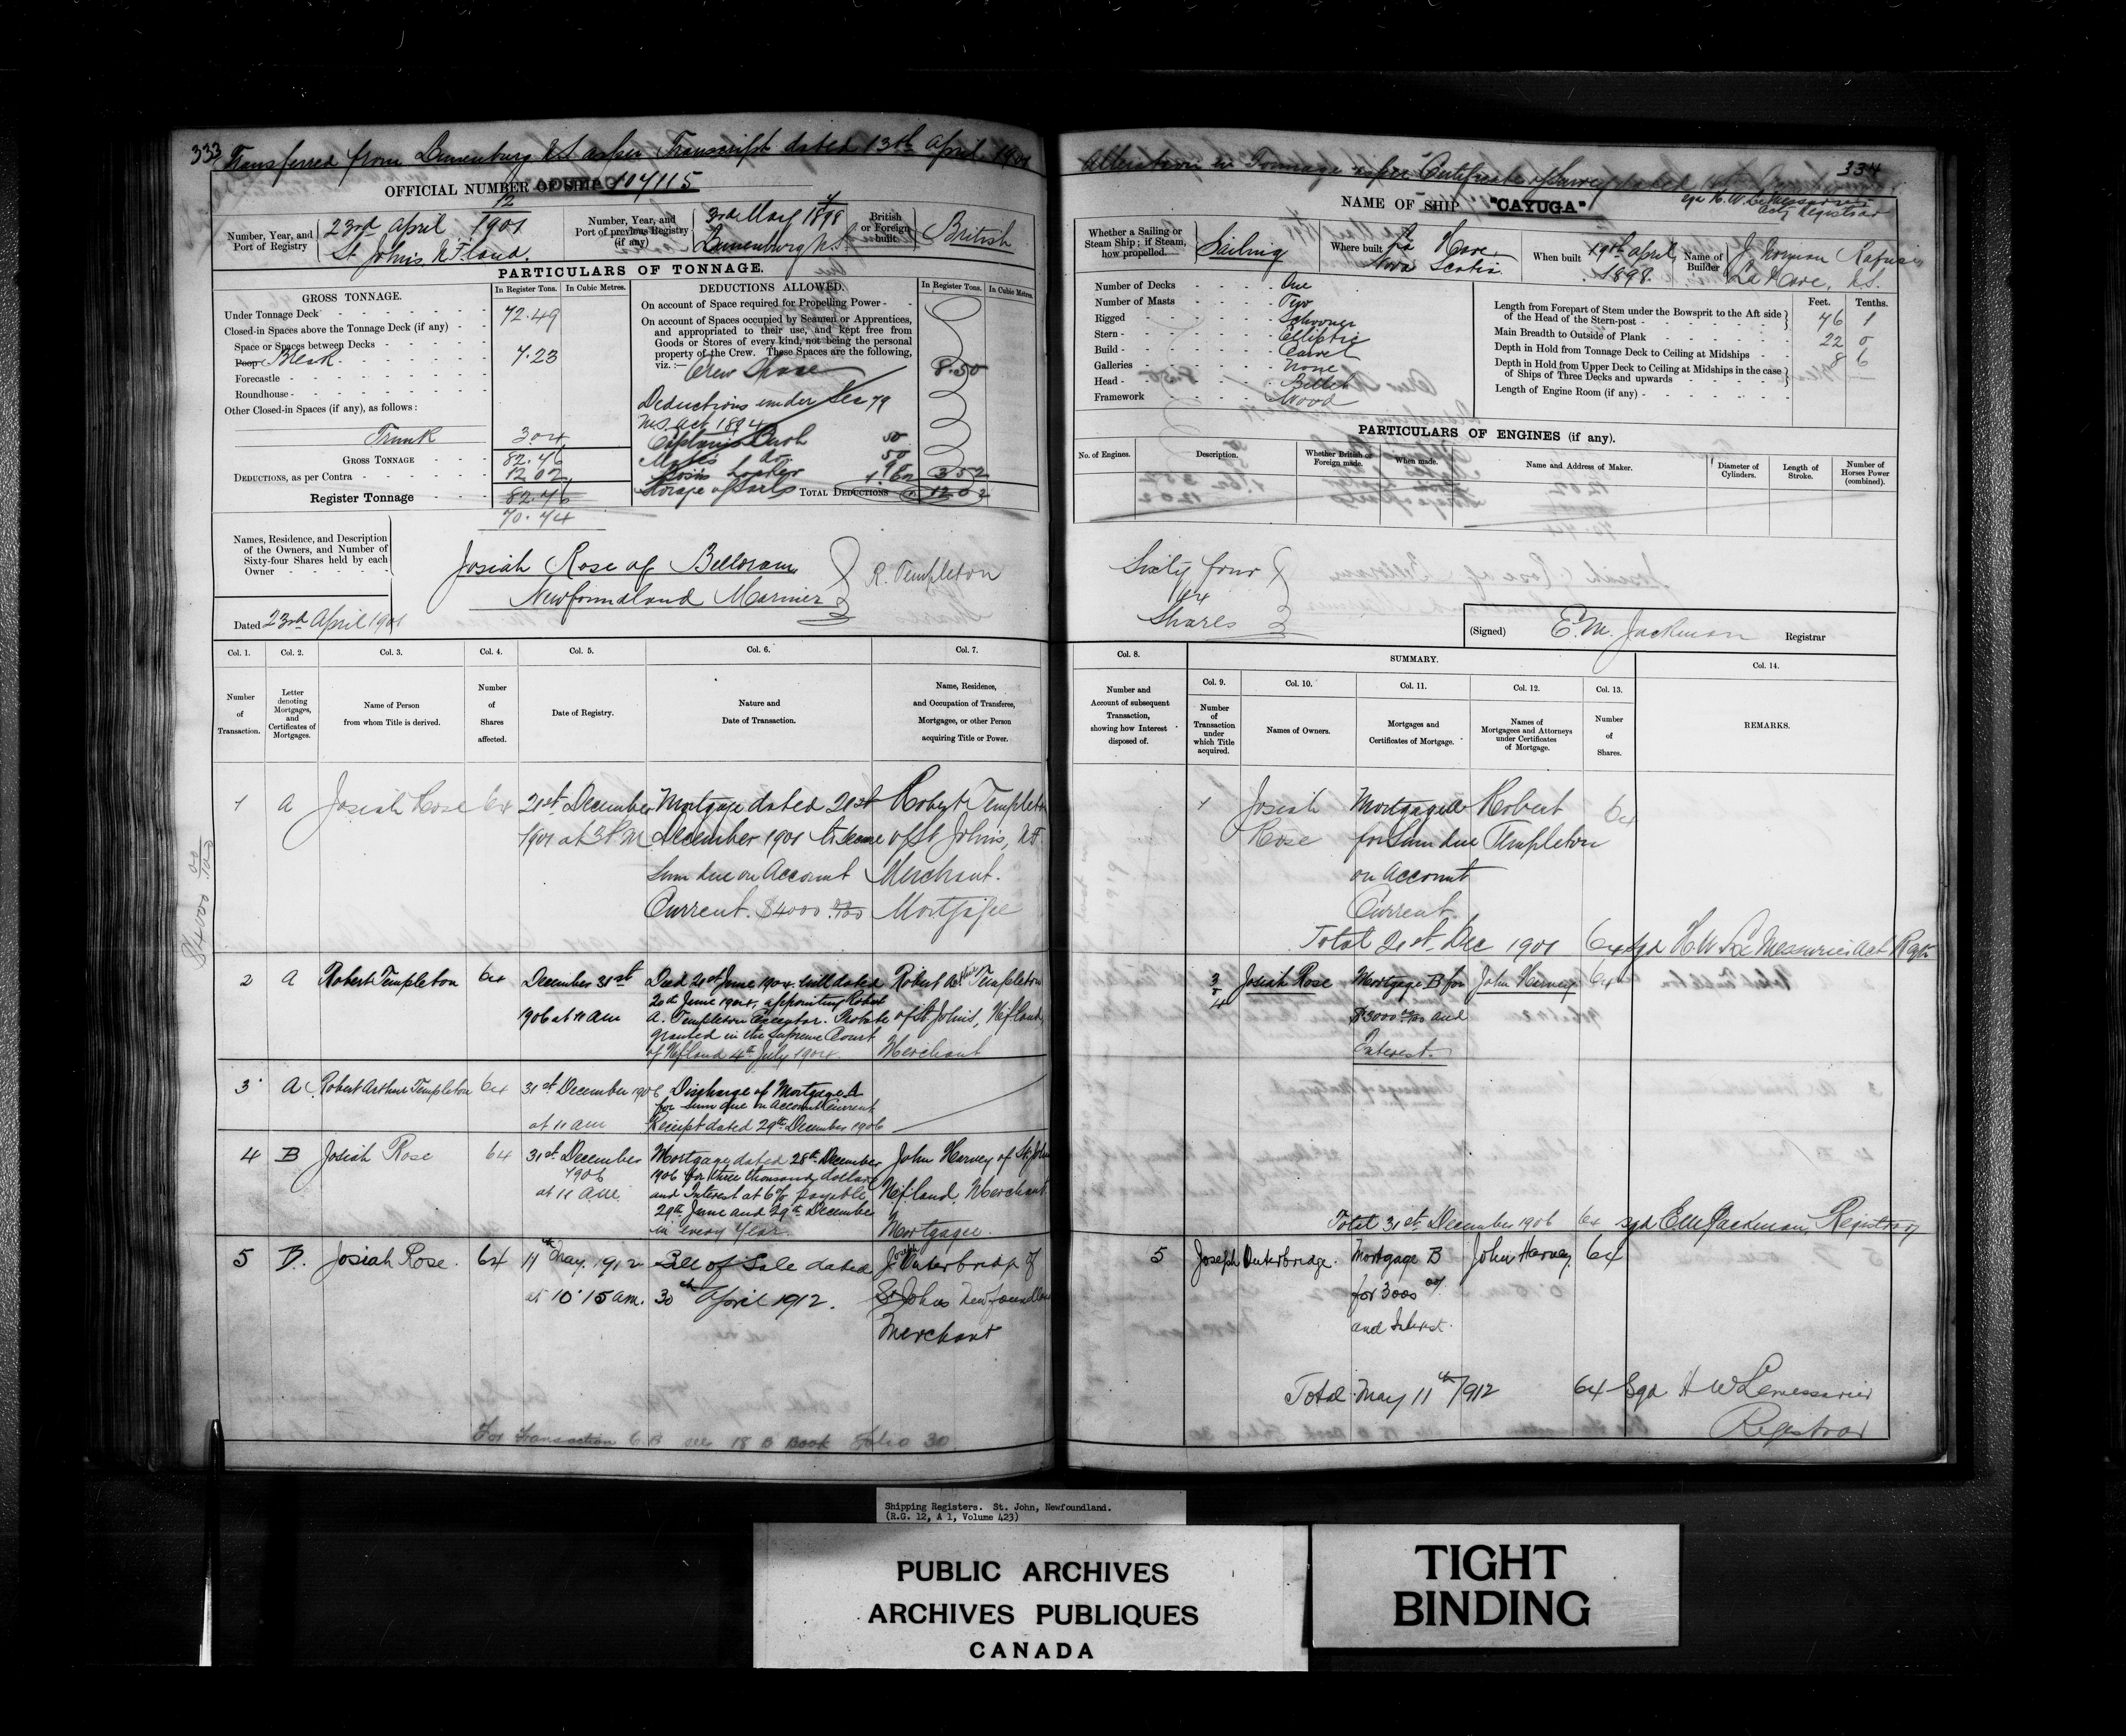 333
Transferred from Lunenburg N.S. as per Transcript dated 13th April 1901
OFFICIAL NUMBER OF SHIP 107115
Number, Year, and Port of Registry
12
23rd April 1901
St John's, N.F.land.
Number, Year, and Port of previous Registry (if any)
3rd May 1898
Lunenburg N.S.
British or Foreign built
British
PARTICULARS OF TONNAGE.
GROSS TONNAGE.
In Register Tons.
In Cubic Metres.
Under Tonnage Deck 72.49
Closed-in Spaces above the Tonnage Deck (if any)
Space or Spaces between Decks
Poop Break 7.23
Forecastle
Roundhouse
Other Closed-in Spaces (if any), as follows:
Trunk 3.04
GROSS TONNAGE 82.46
DEDUCTIONS, as per Contra 12.02
Register Tonnage 82.46
70.44
DEDUCTIONS ALLOWED.
In Register Tons.
In Cubic Metres.
On account of Space required for Propelling Power
On account of Spaces occupied by Seamen or Apprentices,
and appropriated to their use, and kept free from
Goods or Stores of every kind, not being the personal
property of the Crew. These Spaces are the following,
viz.:—
Crew Space 8.50
Deductions under Sec 79
M.S. Act 1894
Captain's Berth 50
Mate's do 50
Bosn's Locker
Storage of Sails 3.52
TOTAL DEDUCTIONS 12.02
Names, Residence, and Description
of the Owners, and Number of
Sixty-four Shares held by each
Owner
Josiah Rose of Belloram
Newfoundland Mariner
R. Templeton
Dated 23rd April 1901
Col. 1. Col. 2. Col. 3. Col. 4. Col. 5. Col. 6. Col. 7.
Number of Transaction.
Letter denoting Mortgages, and Certificates of Mortgages.
Name of Person from whom Title is derived.
Number of Shares affected.
Date of Registry.
Nature and Date of Transaction.
Name, Residence, and Occupation of Transferee, Mortgagee, or other Person acquiring Title or Power.
1 A Josiah Rose 64 21st December Mortgage dated 21st Robert Templeton
1901 at 3 P.M. December 1901 to secure of St John's, N.F.
Sum due on Account Merchant.
Current. $4000 00/100 Mortgagee
$4000 00/100
2 A Robert Templeton 64 December 31st Died 21st June 1904. Will dated Robert A. Templeton
1906 at 11 am 20th June 1904, appointing Robert
A. Templeton Executor. Probate of St John's, Nfland,
granted in the Supreme Court
of Nfland 4th July 1904. Merchant
3 A Robert Arthur Templeton 64 31st December 1906 Discharge of Mortgage A
for sum due on Account Current
at 11 am Receipt dated 29th December 1906
4 B Josiah Rose 64 31st December Mortgage dated 28th December John Harvey of St John's
1906 1906 for three thousand dollars
at 11 am. and Interest at 6% payable Nfland. Merchant
29th June and 29th December
in every Year. Mortgagee.
5 B. Josiah Rose. 64 11th May 1912 Bill of Sale dated Joseph Outerbridge of
at 10.15 am. 30th April 1912. St Johns Newfoundland
Merchant
For Transaction 6 B see 18 B Book Folio 30
334
Alteration in Tonnage as per Certificate of Survey dated
sgd H.W. LeMessurier
Actg Registrar
NAME OF SHIP "CAYUGA"
Whether a Sailing or Steam Ship; if Steam, how propelled.
Sailing
Where built
La Have
Nova Scotia
When built
19th April,
1898.
Name of Builder
J. Norman Rafuse
La Have, N.S.
Number of Decks One
Number of Masts Two
Rigged Schooner
Stern Elliptic
Build Carvel
Galleries None
Head Billet
Framework Wood
Feet. Tenths.
Length from Forepart of Stem under the Bowsprit to the Aft side
of the Head of the Stern-post 76 1
Main Breadth to Outside of Plank 22 0
Depth in Hold from Tonnage Deck to Ceiling at Midships 8 6
Depth in Hold from Upper Deck to Ceiling at Midships in the case
of Ships of Three Decks and upwards —
Length of Engine Room (if any)
PARTICULARS OF ENGINES (if any).
No. of Engines.
Description.
Whether British or Foreign made.
When made.
Name and Address of Maker.
Diameter of Cylinders.
Length of Stroke.
Number of Horses Power (combined).
Sixty four
64
Shares
(Signed) E.M. Jackman Registrar
Col. 8.
SUMMARY.
Col. 9. Col. 10. Col. 11. Col. 12. Col. 13. Col. 14.
Number and Account of subsequent Transaction, showing how Interest disposed of.
Number of Transaction under which Title acquired.
Names of Owners.
Mortgages and Certificates of Mortgage.
Names of Mortgagees and Attorneys under Certificates of Mortgage.
Number of Shares.
REMARKS.
1 Josiah Mortgage A Robert 64
Rose for Sum due Templeton
on Account
Current.
Total 21st Dec 1901 64 sgd H.W. LeMessurier Act Regr
3 & 4 Josiah Rose Mortgage B for John Harvey 64
$3000 00/100 and
Interest.
Total 31st December 1906 64 sgd E M Jackman, Registrar
5 Joseph Outerbridge. Mortgage B John Harvey 64
for 3000
and Interest.
Total May 11th/1912 64 Sgd H W Lemessurier
Registrar
Shipping Registers. St. John, Newfoundland.
(R.G. 12, A 1, Volume 423)
PUBLIC ARCHIVES
ARCHIVES PUBLIQUES
CANADA
TIGHT
BINDING